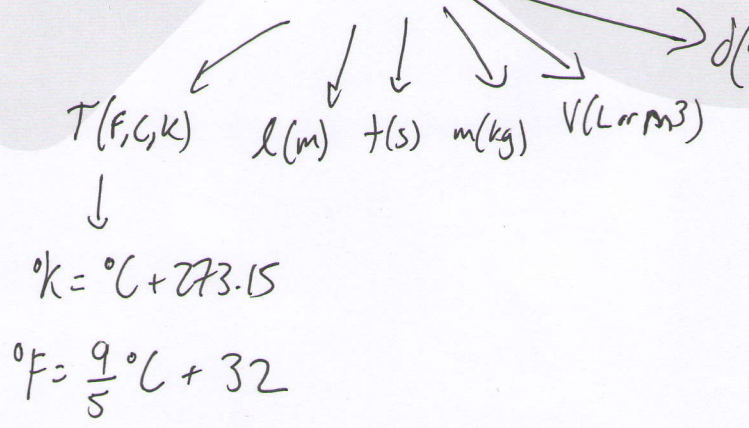 d(
T(F,C,K) l(m) t(s) m(kg) V(L or m3)
°K = °C + 273.15
°F = 9/5 °C + 32